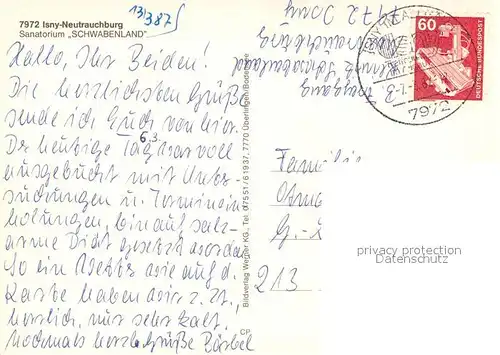 13/3 87
7972 Isny-Neutrauchburg
Sanatorium „SCHWABENLAND"
Hallo, Ihr Beiden.
Die herzlichsten Grüße
sende ich Euch von hier.
Der heutige Tag 6.3. war voll
ausgebucht mit Unter-
suchungen u. Terminein-
holungen, bin auf salz-
arme Diät gesetzt worden.
So ein Wetter wie auf d.
Karte haben wir z. Zt.,
herrlich, nur sehr kalt.
Nochmals herzl. Grüße Bärbel
Bildverlag Werner KG., Tel. 07551/61937, 7770 Überlingen/Bodensee
CP
7972 Isny
Schwabenland
60
DEUTSCHE BUNDESPOST
7972
Familie
G.-
213
privacy protection
Datenschutz